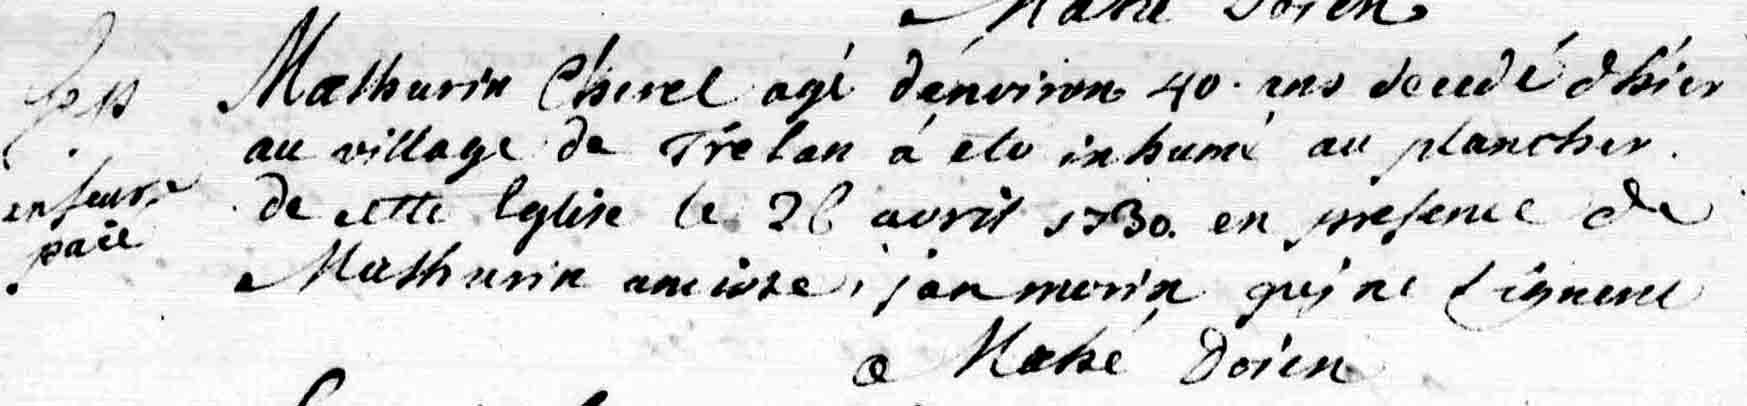 Mahé Doien
Mathurin Cherel agé d'anviron 40 ans decedé d'hier
au village de Trélan á eté inhumé au plancher
de cette Eglise le 26 avril 1730. en presence de
enfeur
paié
Mathurin jan morin qui ne signent
Mahé Doien